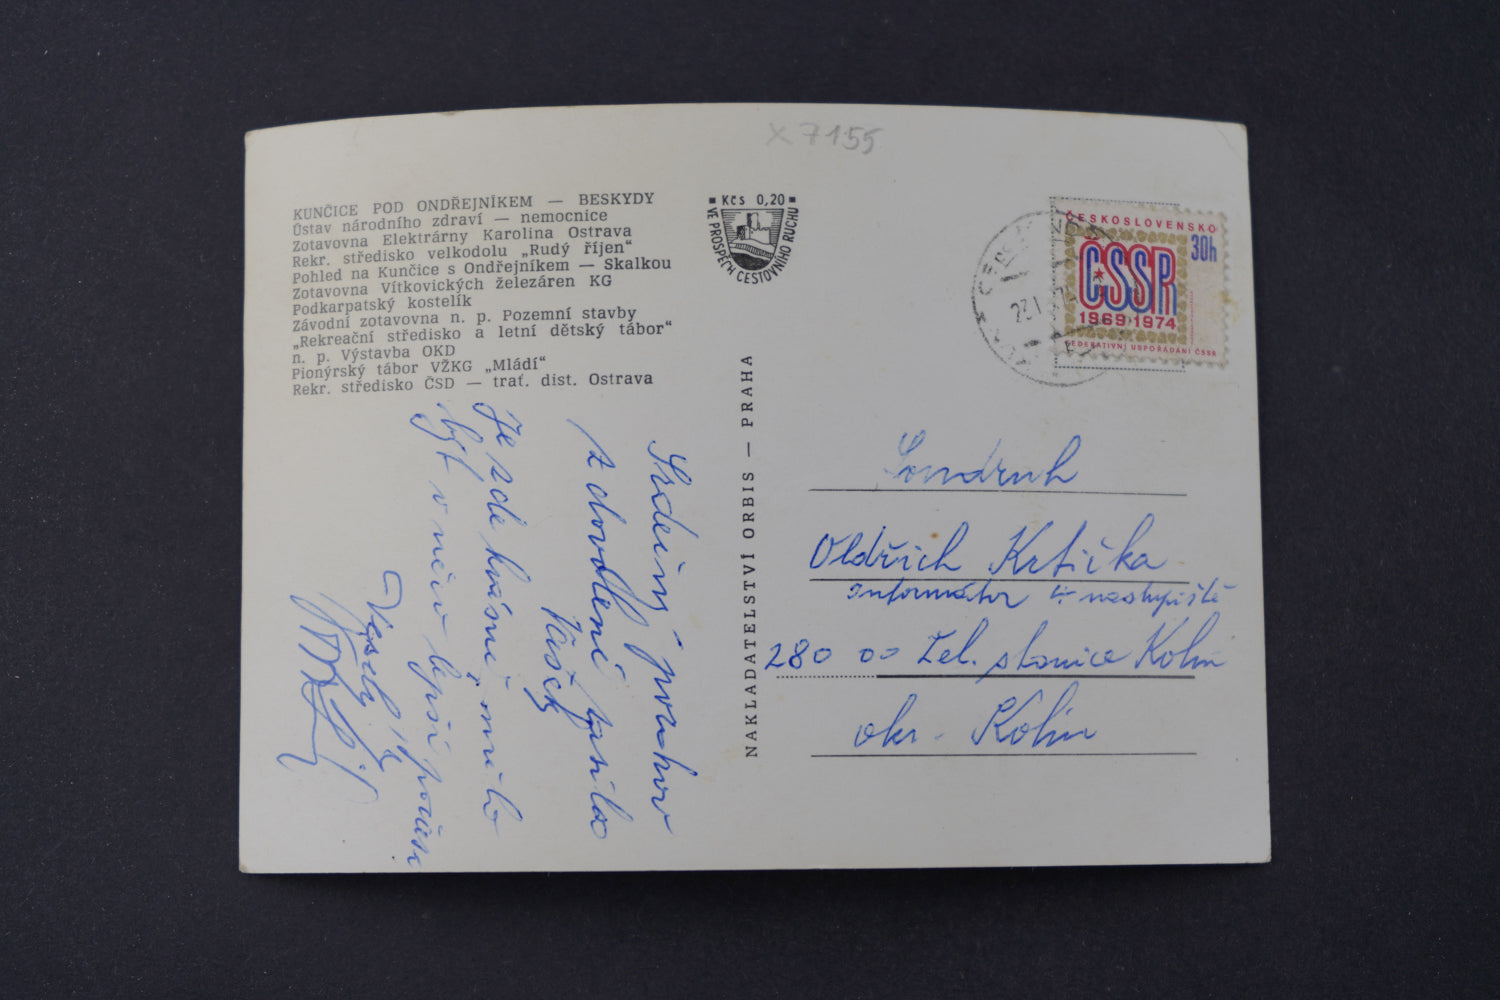 x 7155
KUNČICE POD ONDŘEJNÍKEM — BESKYDY
Ústav národního zdraví — nemocnice
Zotavovna Elektrárny Karolina Ostrava
Rekr. středisko velkodolu „Rudý říjen“
Pohled na Kunčice s Ondřejníkem — Skalkou
Zotavovna Vítkovických železáren KG
Podkarpatský kostelík
Závodní zotavovna n. p. Pozemní stavby
„Rekreační středisko a letní dětský tábor“
n. p. Výstavba OKD
Pionýrský tábor VŽKG „Mládí“
Rekr. středisko ČSD — trať. dist. Ostrava
Kčs 0,20
VE PROSPĚCH CESTOVNÍHO RUCHU
NAKLADATELSTVÍ ORBIS — PRAHA
ČESKOSLOVENSKO
30h
ČSSR
1969·1974
FEDERATIVNÍ USPOŘÁDÁNÍ ČSSR
Srdečný pozdrav
z dovolené posílá
Vašek
Je zde krásně, mělo
být v něco lepší počasí
Veselý
Soudruh
Oldřich Krtička
Informátor nástupiště
280 00 Žel. stanice Kolín
okr. Kolín